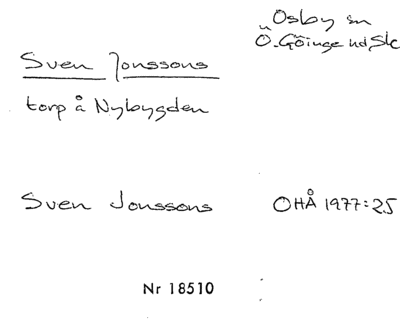 Osby sn
Ö. Göinge hd, Sk
Sven Jonssons
torp å Nybygden
Sven Jonssons
OHÅ 1977:25
Nr 18510